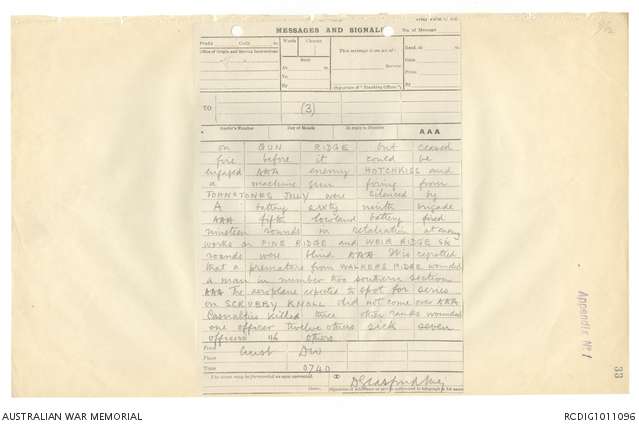 MESSAGES AND SIGNALS.
No. of Message
Prefix Code m.
Words Charge
This message is on a/c of:
Recd. at m.
Office of Origin and Service Instructions
Sent
Date
At m.
Service.
From
To
By
(Signature of "Franking Officer.")
By
TO
(3)
Sender's Number
Day of Month
In reply to Number
AAA
on GUN RIDGE but ceased
fire before it could be
engaged AAA enemy HOTCHKISS and
a machine gun firing from
JOHNSTONES JOLLY were silenced by
A battery sixty ninth brigade
AAA fifth lowland battery fired
nineteen rounds in retaliation at enemy
works on PINE RIDGE and WEIR RIDGE six
rounds were blind AAA It is reported
that a premature from WALKERS RIDGE wounded
a man in number two southern section
AAA The aeroplane expected to spot for series
on SCRUBBY KNOLL did not come over AAA
Casualties killed three other ranks wounded
one officer twelve others sick seven
officers 46 others
From Aust Div
Place
Time 0740
The above may be forwarded as now corrected.
(Z)
Censor.
Appendix No 1
33
AUSTRALIAN WAR MEMORIAL
RCDIG1011096